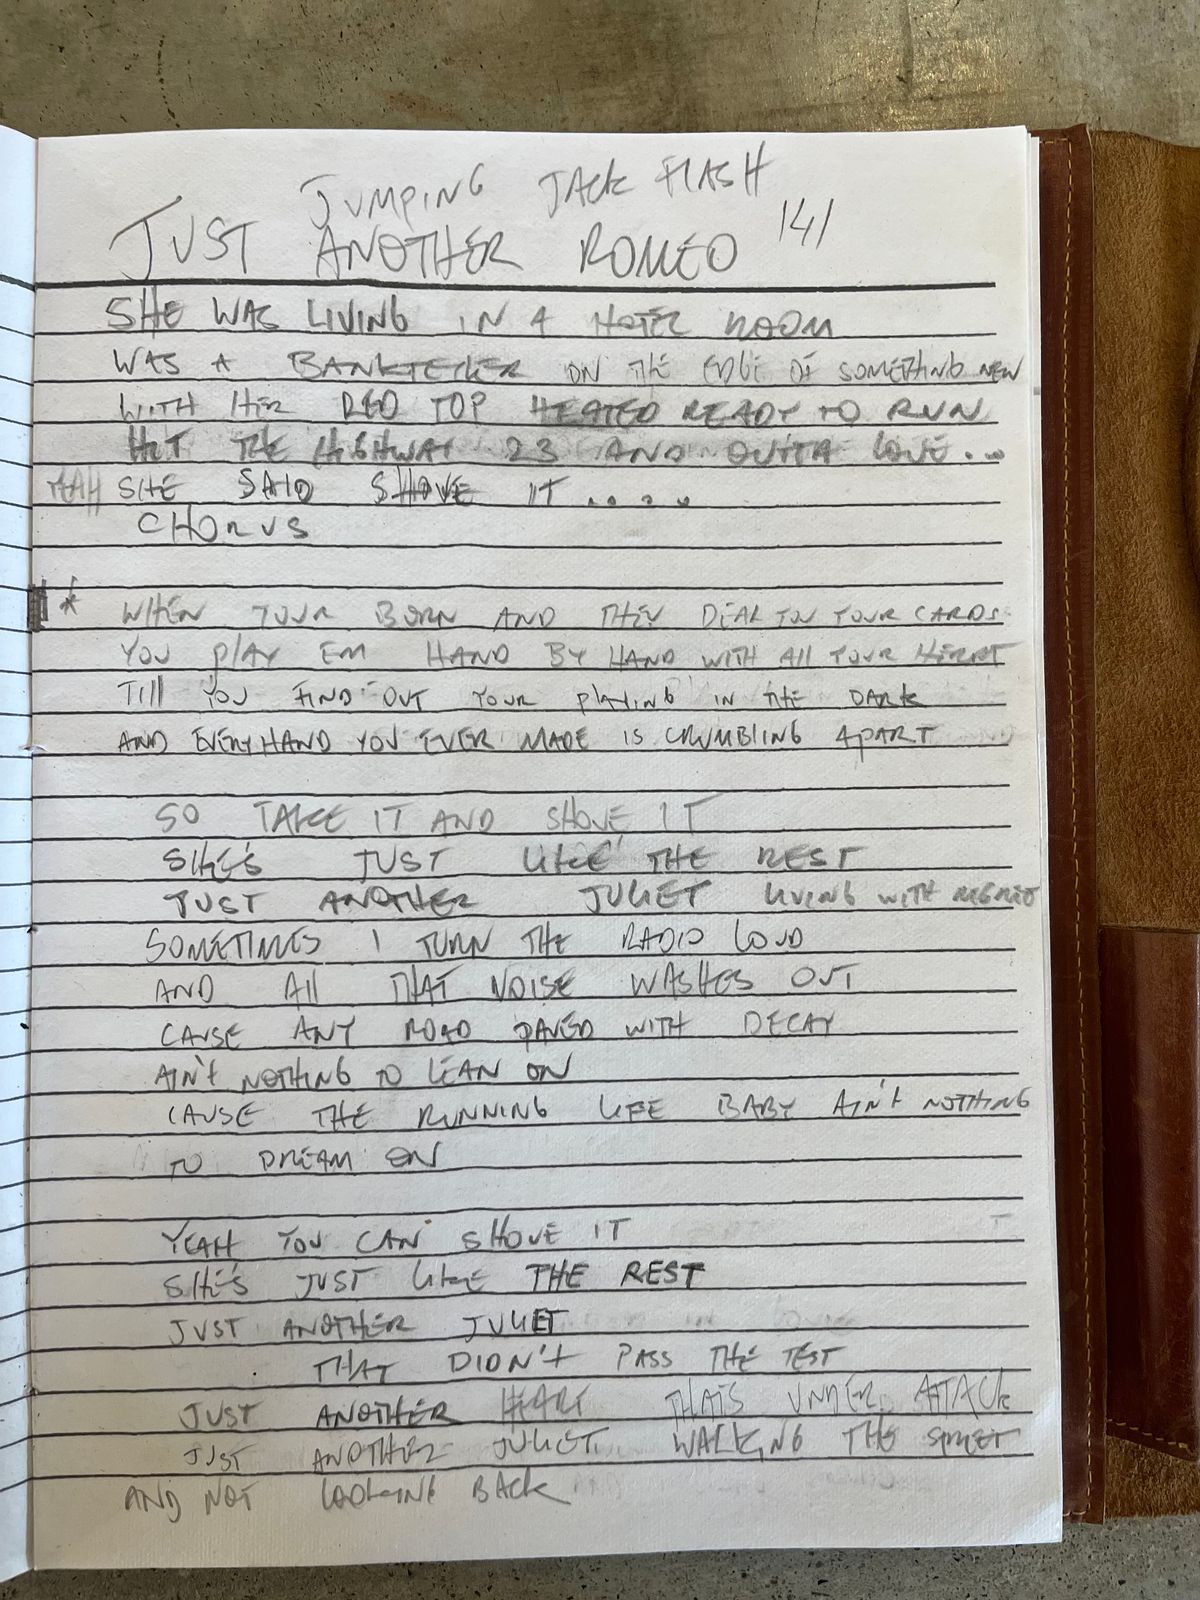 JUMPING JACK FLASH
JUST ANOTHER ROMEO 141
SHE WAS LIVING IN A HOTEL ROOM
WAS A BANKTELLER ON THE EDGE OF SOMETHING NEW
WITH HER RED TOP HEATED READY TO RUN
HIT THE HIGHWAY 23 AND OUTTA LOVE...
YEAH SHE SAID SHOVE IT ....
CHORUS
* WHEN YOUR BORN AND THEY DEAL YOU YOUR CARDS
YOU PlAY EM HAND BY HAND WITH All YOUR HEART
TIll YOU FIND OUT YOUR PlAYING IN THE DARK
AND EVERYHAND YOU EVER MADE IS CRUMBLING APART
SO TAKE IT AND SHOVE IT
SHE'S JUST LIKE THE REST
JUST ANOTHER JULIET LIVING WITH REGRET
SOMETIMES I TURN THE RADIO LOUD
AND All THAT NOISE WASHES OUT
CAUSE ANY ROAD PAVED WITH DECAY
AIN't NOTHING TO LEAN ON
CAUSE THE RUNNING LIFE BABY AIN't NOTHING
TO DREAM ON
YEAH YOU CAN SHOVE IT
SHE'S JUST LIKE THE REST
JUST ANOTHER JULIET
THAT DIDN't PASS THE TEST
JUST ANOTHER HEART THATS UNDER ATTACK
JUST ANOTHER JULIET WALKING THE STREET
AND NOT LOOKING BACK